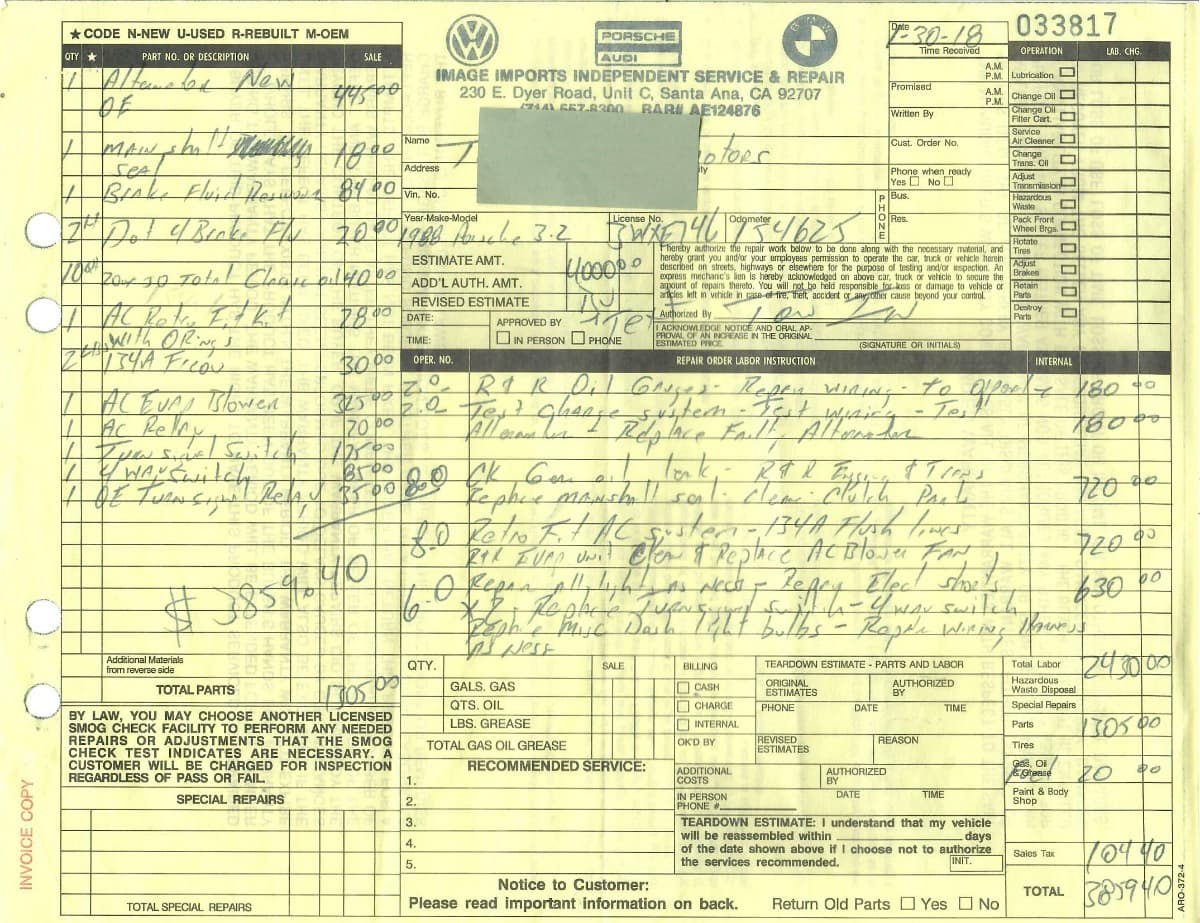 ★ CODE N-NEW U-USED R-REBUILT M-OEM
QTY ★ PART NO. OR DESCRIPTION SALE
1 Alternator New 445 00
OE
1 Main shaft 18 00
Seal
1 Brake Fluid Resivour 84 00
2 Dot 4 Brake Flu 20 00
10 20w50 Total Classic oil 40 00
1 AC Retro Fit Kit 78 00
With O Rings
2 134A Freon 30 00
1 AC Evap Blower 325 00
1 AC Relay 70 00
1 Turn Signal Switch 175 00
1 4 Way Switch 85 00
1 OE Turn Signal Relay 35 00
$ 3859.40
Additional Materials
from reverse side
TOTAL PARTS 1305 00
BY LAW, YOU MAY CHOOSE ANOTHER LICENSED
SMOG CHECK FACILITY TO PERFORM ANY NEEDED
REPAIRS OR ADJUSTMENTS THAT THE SMOG
CHECK TEST INDICATES ARE NECESSARY. A
CUSTOMER WILL BE CHARGED FOR INSPECTION
REGARDLESS OF PASS OR FAIL.
SPECIAL REPAIRS
TOTAL SPECIAL REPAIRS
INVOICE COPY
PORSCHE
AUDI
BMW
IMAGE IMPORTS INDEPENDENT SERVICE & REPAIR
230 E. Dyer Road, Unit C, Santa Ana, CA 92707
(714) 557-8300 BAR# AE124876
Name T Motors
Address
Vin. No.
Year-Make-Model License No. Odometer
1988 Porsche 3.2 3WXE746 134625
ESTIMATE AMT. 4000 00
ADD'L AUTH. AMT.
REVISED ESTIMATE
DATE: APPROVED BY
TIME: IN PERSON PHONE
PHONE
Bus.
Res.
I hereby authorize the repair work below to be done along with the necessary material, and
hereby grant you and/or your employees permission to operate the car, truck or vehicle herein
described on streets, highways or elsewhere for the purpose of testing and/or inspection. An
express mechanic's lien is hereby acknowledged on above car, truck or vehicle to secure the
amount of repairs thereto. You will not be held responsible for loss or damage to vehicle or
articles left in vehicle in case of fire, theft, accident or any other cause beyond your control.
Authorized By
I ACKNOWLEDGE NOTICE AND ORAL AP-
PROVAL OF AN INCREASE IN THE ORIGINAL
ESTIMATED PRICE.
(SIGNATURE OR INITIALS)
Date 1-30-18
Time Received
A.M.
P.M.
Promised A.M.
P.M.
Written By
Cust. Order No.
Phone when ready
Yes No
033817
OPERATION LAB. CHG.
Lubrication
Change Oil
Change Oil
Filter Cart.
Service
Air Cleaner
Change
Trans. Oil
Adjust
Transmission
Hazardous
Waste
Pack Front
Wheel Brgs.
Rotate
Tires
Adjust
Brakes
Retain
Parts
Destroy
Parts
OPER. NO. REPAIR ORDER LABOR INSTRUCTION INTERNAL
2.0 R & R Oil Gauges - Repair wiring - to Operate 180 00
2.0 Test Charge system - Test wiring - Test
Alternator & Replace Faulty Alternator 180 00
8.0 CK Gen oil leak - R & R Engine & Trans
Replace Mainshaft seal - Clean Clutch Parts 720 00
8.0 Retro Fit AC system - 134A Flush lines
R&R Evap unit Clean & Replace AC Blower FAN 720 00
6.0 Repair all lights As Necs - Repair Elect shorts 630 00
Replace Turn signal switch - 4 way switch
Replace Misc Dash light bulbs - Repair Wiring Harness
As Ness
QTY. SALE
GALS. GAS
QTS. OIL
LBS. GREASE
TOTAL GAS OIL GREASE
RECOMMENDED SERVICE:
1.
2.
3.
4.
5.
BILLING
CASH
CHARGE
INTERNAL
OK'D BY
TEARDOWN ESTIMATE - PARTS AND LABOR
ORIGINAL
ESTIMATES
AUTHORIZED
BY
PHONE DATE TIME
REVISED
ESTIMATES
REASON
ADDITIONAL
COSTS
AUTHORIZED
BY
IN PERSON
PHONE #
DATE TIME
TEARDOWN ESTIMATE: I understand that my vehicle
will be reassembled within days
of the date shown above if I choose not to authorize
the services recommended. INIT.
Notice to Customer:
Please read important information on back.
Return Old Parts Yes No
Total Labor 2430 00
Hazardous
Waste Disposal
Special Repairs
Parts 1305 00
Tires
Gas, Oil
& Grease Fuel 20 00
Paint & Body
Shop
Sales Tax 104 40
TOTAL 3859 40
ARO-372-4